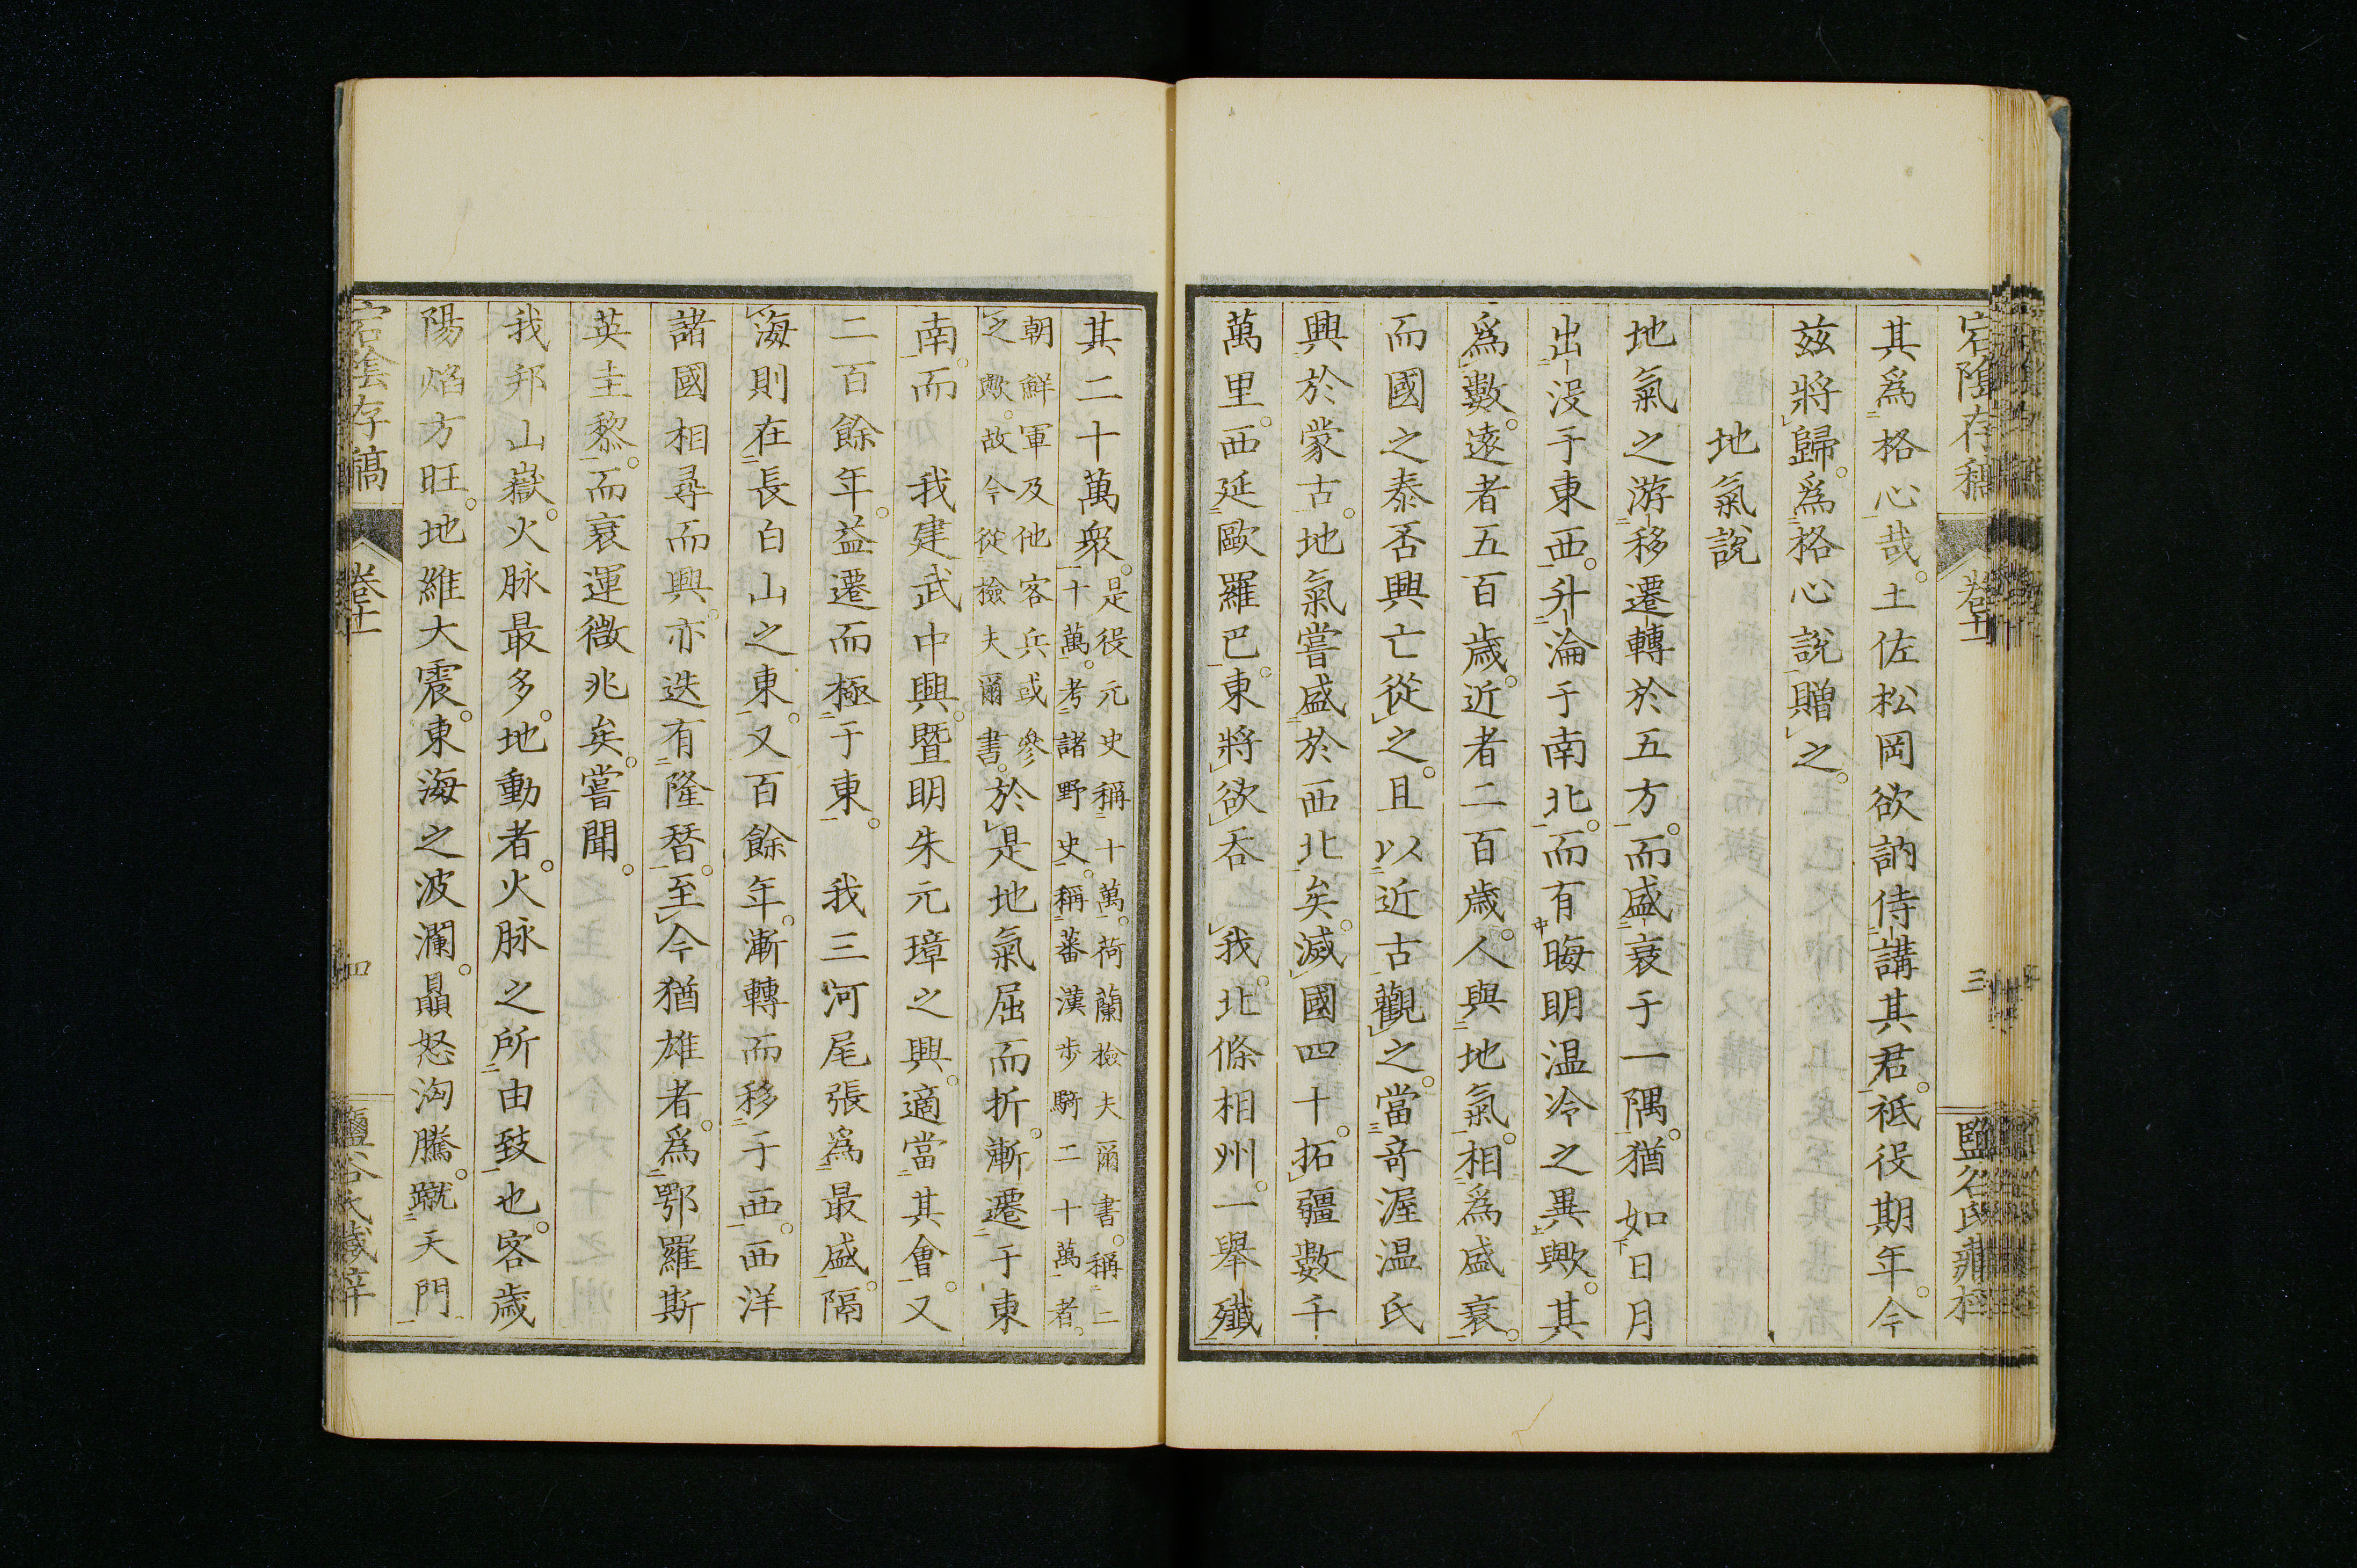 宕陰存稿 卷十一 三
其爲格心哉。土佐松岡欲訥侍講其君。祗役期年。今
茲將歸。爲格心說贈之。
地氣說
地氣之游移遷轉於五方。而盛衰于一隅。猶如日月
出没于東西。升淪于南北。而有晦明温冷之異歟。其
爲數。遠者五百歲。近者二百歲。人與地氣。相爲盛衰。
而國之泰否興亡從之。且以近古觀之。當奇渥温氏
興於蒙古。地氣嘗盛於西北矣。滅國四十。拓疆數千
萬里。西延歐羅巴。東將欲吞 我。北條相州。一舉殲
其二十萬衆。是役元史稱十萬。荷蘭檢夫爾書。稱二
十萬。考諸野史。稱蕃漢步騎二十萬者。
朝鮮軍及他客兵或參
之歟。故今從檢夫爾書。於是地氣屈而折。漸遷于東
南。而 我建武中興。暨明朱元璋之興。適當其會。又
二百餘年。益遷而極于東。 我三河尾張爲最盛。隔
海則在長白山之東。又百餘年。漸轉而移于西。西洋
諸國相尋而興。亦迭有隆替。至今猶雄者。爲鄂羅斯
英圭黎。而衰運徵兆矣。嘗聞。
我邦山嶽。火脉最多。地動者。火脉之所由致也。客歲
陽焰方旺。地維大震。東海之波瀾。贔怒洶騰。蹴天門
宕陰存稿 卷十一 四 鹽谷氏藏梓